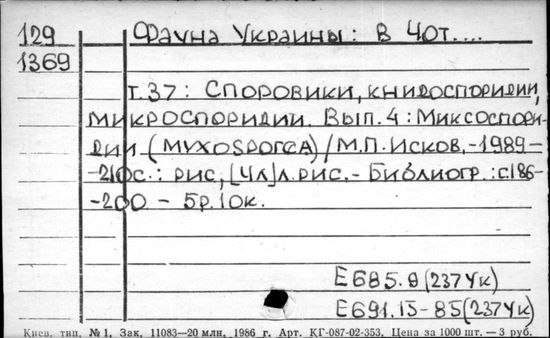 129 Фауна Украины: В 40т....
1369
Т.37: Споровики, книдоспоридии,
микроспоридии. Вып. 4: Миксоспори-
дии (Myxosporea) / М.П. Исков, -1989-
-210с.: рис, [4л]л.рис. - Библиогр.: с.186-
-200 - 5р.10к.
Е685.9(237Ук)
Е691.15-85(237Ук)
Киев. тип. № 1, Зак. 11083—20 млн. 1986 г. Арт. КГ-087-02-353. Цена за 1000 шт. — 3 руб.